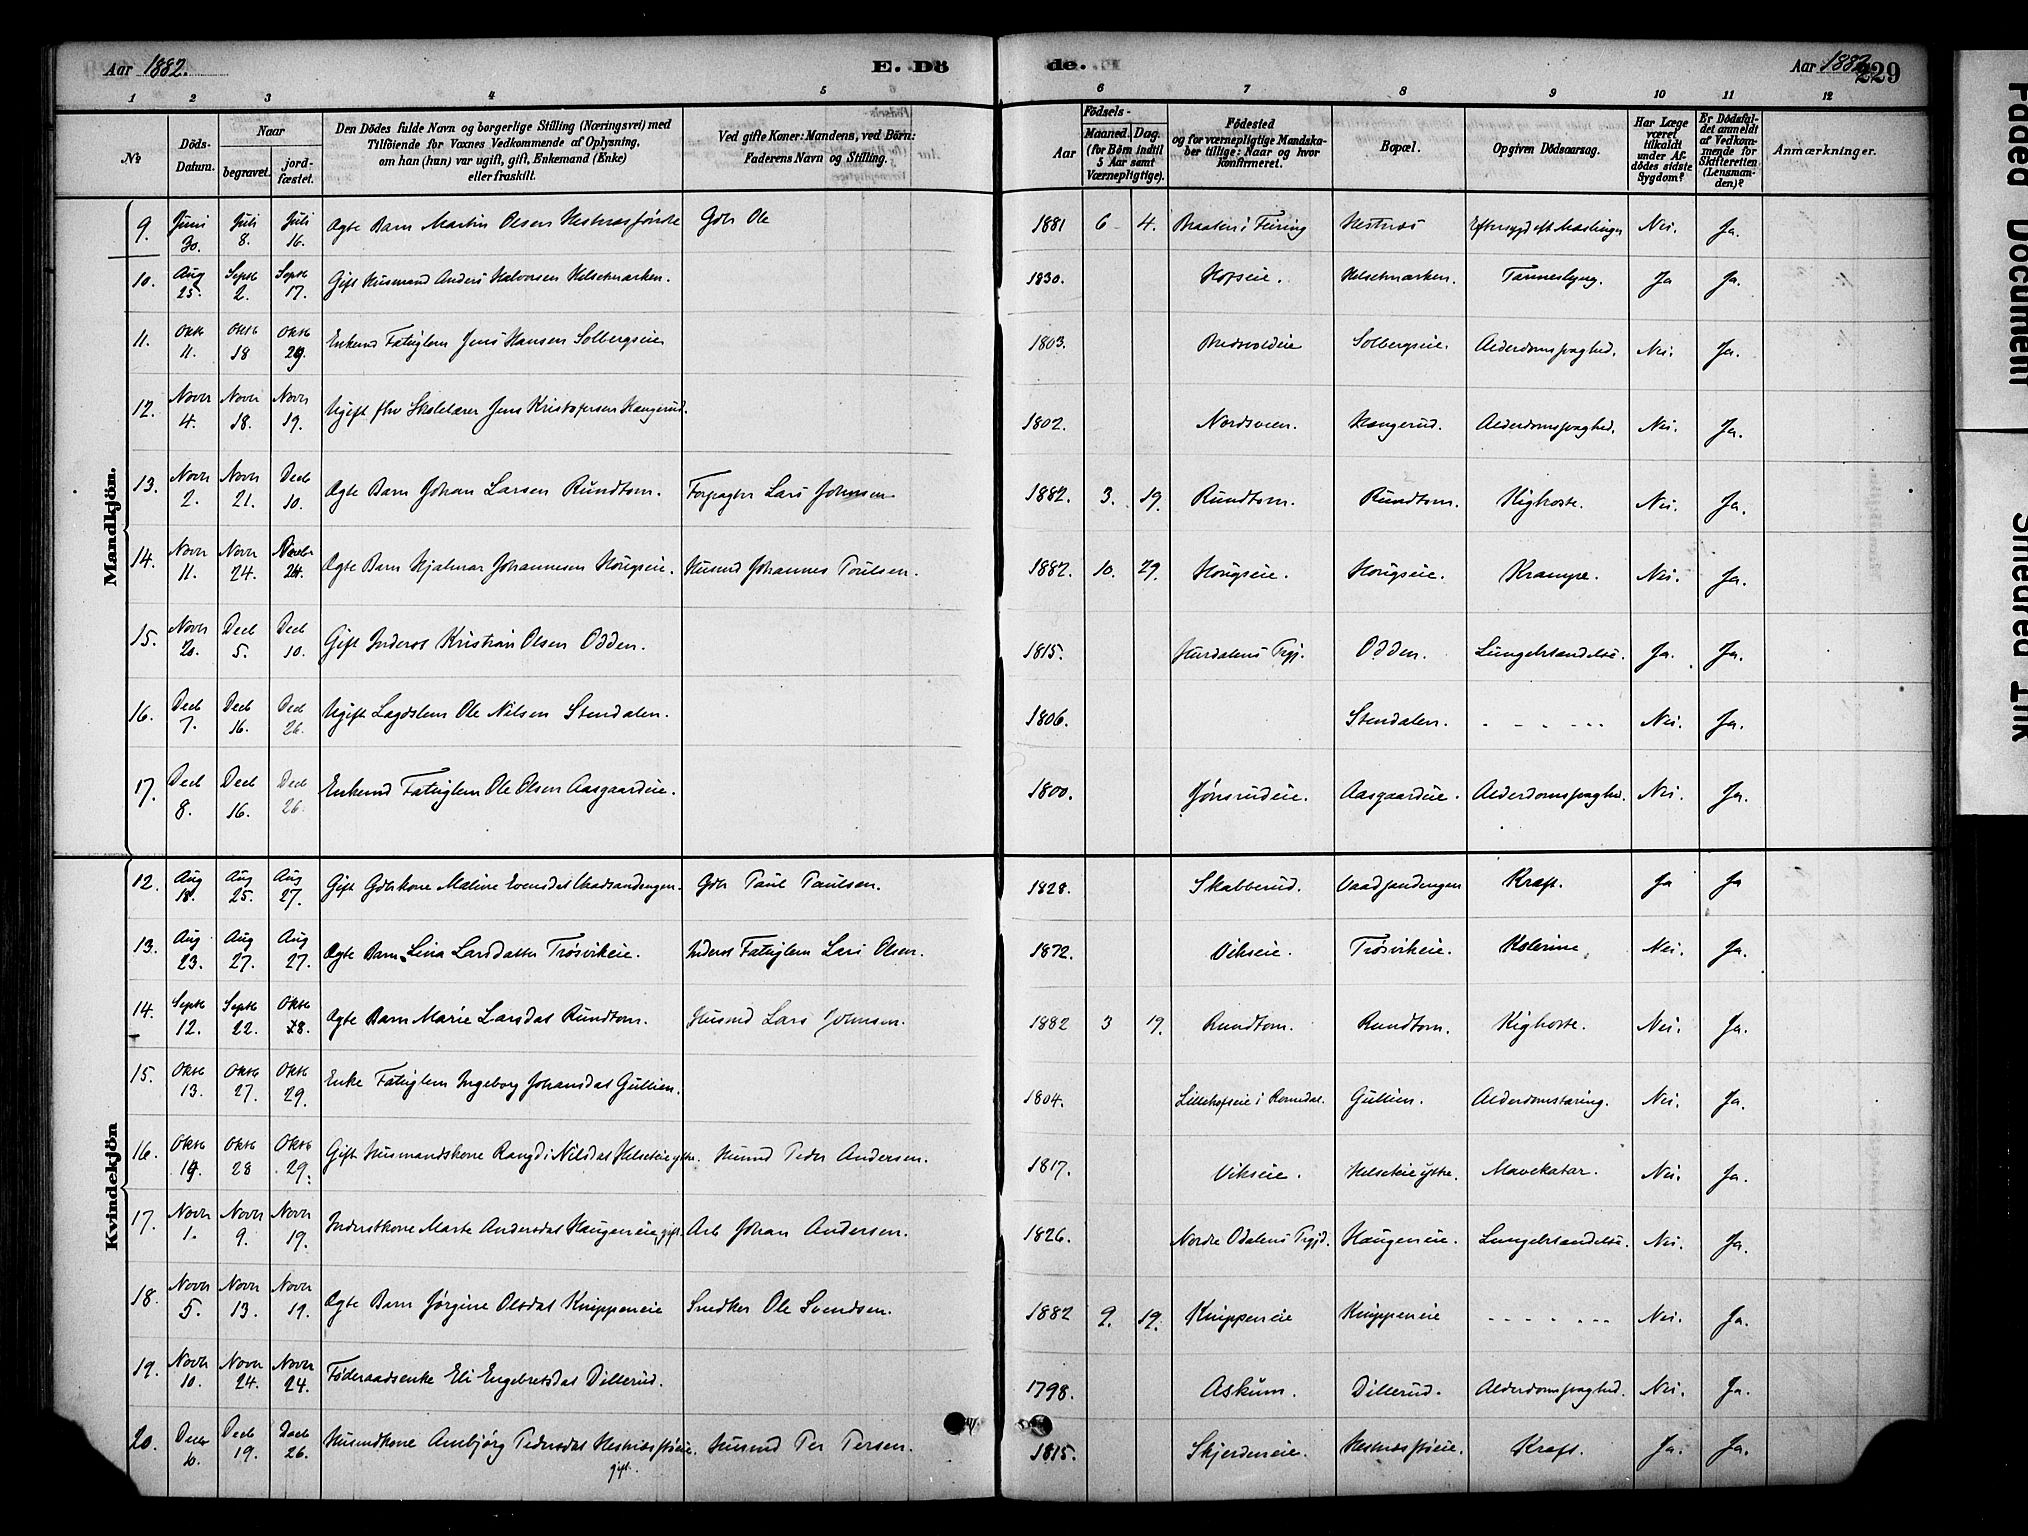 Aar 1882. E. Dö de. Aar 1882 229
1 2 3 4 5 6 7 8 9 10 11 12
No
Döds-Datum.
Naar
begravet.
jord-fæstet.
Den Dödes fulde Navn og borgerlige Stilling (Næringsvei) med
Tilföiende for Voxnes Vedkommende af Oplysning,
om han (hun) var ugift, gift, Enkemand (Enke)
eller fraskilt.
Ved gifte Koner: Mandens, ved Börn:
Faderens Navn og Stilling.
Födsels-
Aar
Maaned. Dag.
(for Börn indtil
5 Aar samt
Værnepligtige).
Födested
og for værnepligtige Mandska-
ber tillige: Naar og hvor
konfirmeret.
Bopæl.
Opgiven Dödsaarsag.
Har Læge
været
tilkaldt
under Af-
dödes sidste
Sygdom?
Er Dödsfal-
det anmeldt
af Vedkom-
mende for
Skifteretten
(Lensman-
den)?
Anmærkninger.
Mandkjön.
9. Juni 30. Juli 8. Juli 16. Ægte Barn Martin Olsen Gdb Ole 1881 6 4. Braaten i Feiring Hestnæs Nei. Ja.
10. Aug 25. Septb 2. Septb 17. Gift Husmand Anders Halvorsen Helsetmarken. 1830. Hopseie. Helsetmarken. Ja Ja.
11. Oktb 11. Oktb 18 Oktb 29. Enkemd Fatiglem Jens Hansen Solbergseie 1803. Solbergseie. Alderdomssvaghed. Nei. Ja.
12. Novbr 4. Novbr 18. Novbr 19. Ugift fhv Skolelærer Jens Kristofersen Haugerud. 1802. Nordsveen. Haugerud. Alderdomssvaghed. Nei. Ja.
13. Novbr 2. Novbr 21. Decb 10. Ægte Barn Johan Larsen Rundtom. Forpagter Lars Johnsen 1882. 3. 19. Rundtom. Rundtom. Kighoste. Nei. Ja.
14. Novbr 11. Novbr 24. Decbr 26. Ægte Barn Hjalmar Johannesen Hougseie. Husmd Johannes Poulsen. 1882. 10. 29. Hougseie. Hougseie. Krampe. Nei. Ja.
15. Novbr 20. Decb 5. Decb 10. Gift Inderst Kristian Olsen Odden. 1815. Hurdalens Prgj. Odden. Lungebetændelse. Ja. Ja.
16. Decb 7. Decb 16. Decb 26. Ugift Lægdslem Ole Nilsen Stendalen. 1806. Stendalen. - - - - - Nei. Ja.
17. Decb 8. Decb 16. Decb 26. Enkemd Fatiglem Ole Olsen Aasgaardeie. 1800. Jønsrudeie. Aasgaardeie. Alderdomssvaghed. Nei. Ja.
Kvindekjön
12. Aug 18. Aug 25. Aug 27. Gift Gdbkone Maline Evensdat Vaadsandengen. Gdb Paul Paulsen. 1828. Skabberud. Vaadsandengen Kræft. Ja Ja
13. Aug 23. Aug 27. Aug 27. Ægte Barn Lina Larsdatter Trøsvikeie. Inderst Fatiglem Lars Olsen. 1872. Vikseie. Trøsvikeie. Kolerine Nei. Ja.
14. Septb 12. Septb 22. Oktb 8. Ægte Barn Marie Larsdat Rundtom. Husmd Lars Johnsen. 1882 3 19. Rundtom. Rundtom. Kighoste. Nei. Ja.
15. Oktb 13. Oktb 27. Oktb 29. Enke Fatiglem Ingeborg Johansdat Gullien. 1804. i Romedal. Gullien. Alderdomstæring. Nei. Ja.
16. Oktb 19. Oktb 28 Oktb 29. Gift Husmandskone Rangdi Nilsdat Helseteie ytre. Husmd Peder Andersen. 1817. Vikseie. Helseteie ytre. Mavekatar. Nei. Ja.
17. Novbr 1. Novbr 9. Novbr 19. Inderstkone Marte Andersdat Haugeneie, gift. Arb Johan Andersen. 1826. Nordre Odalens Prgjd. Haugeneie. Lungebetændelse. Nei. Ja.
18. Novbr 5. Novbr 13. Novbr 19. Ægte Barn Jørgine Olsdat Knippeneie Snedker Ole Svendsen. 1882 9. 19. Knippeneie Knippeneie - - - - - - Nei. Ja.
19. Novbr 10. Novbr 24. Novbr 24. Føderaadsenke Eli Engebretsdat Dillerud. 1798. Askum. Dillerud. Alderdomssvaghed. Nei. Ja.
20. Decbr 6. Decb 19. Decb 26. Husmdkone Anbjørg Pedersdat gift. Husmd Per Persen. 1815. Skjerdeneie. Kræft. Ja. Ja.
Faded Document
Smeared Ink